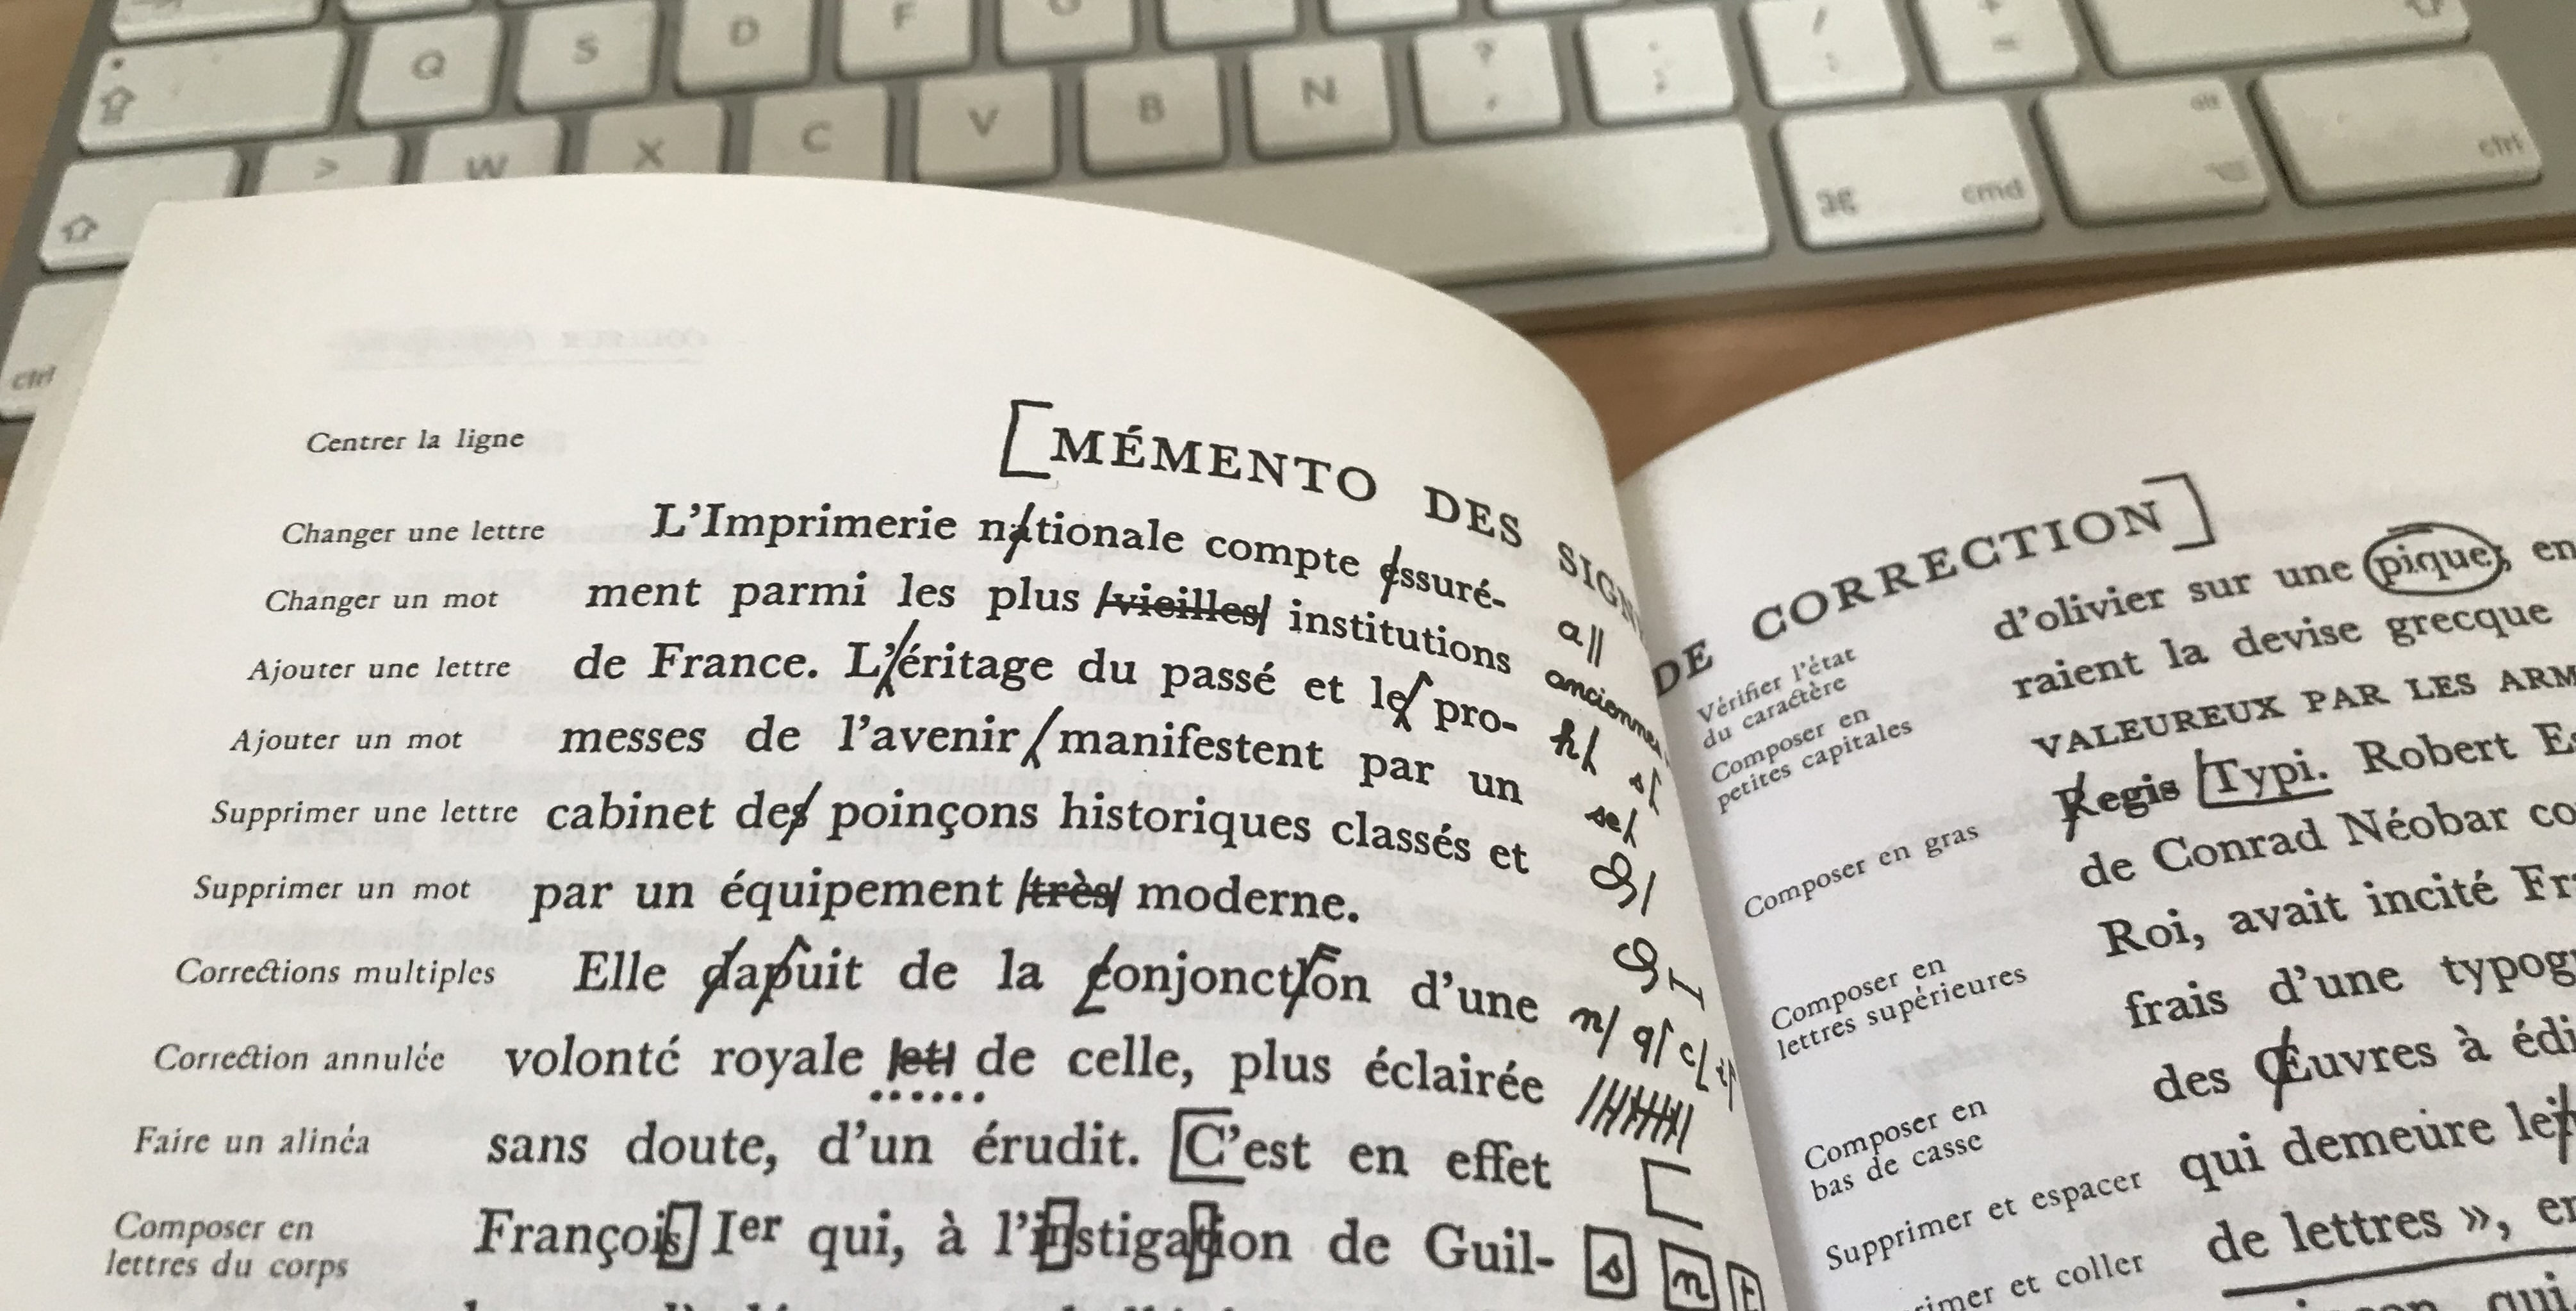 Q S D F G
> W X C V B N ? , . ; / : + =
alt
cmd
ctrl
ctrl
Centrer la ligne
[MÉMENTO DES
Changer une lettre
L'Imprimerie nationale compte essuré-
a
Changer un mot
ment parmi les plus vieilles institutions
anciennes
Ajouter une lettre
de France. L'éritage du passé et le pro-
h s
Ajouter un mot
messes de l'avenir manifestent par un
se
Supprimer une lettre
cabinet des poinçons historiques classés et
Supprimer un mot
par un équipement très moderne.
Corrections multiples
Elle dapuit de la conjonction d'une
n q c
Correction annulée
volonté royale et de celle, plus éclairée
Faire un alinéa
sans doute, d'un érudit. [C'est en effet
Composer en
lettres du corps
François Ier qui, à l'instigation de Guil-
s n t
DE CORRECTION]
d'olivier sur une pique, en
Vérifier l'état
du caractère
raient la devise grecque
Composer en
petites capitales
VALEUREUX PAR LES
Composer en gras
Regis Typi. Robert
de Conrad Néobar
Roi, avait incité
Composer en
lettres supérieures
frais d'une
des Œuvres à
Composer en
bas de casse
qui demeure
Supprimer et espacer
de lettres »,
et coller
qui